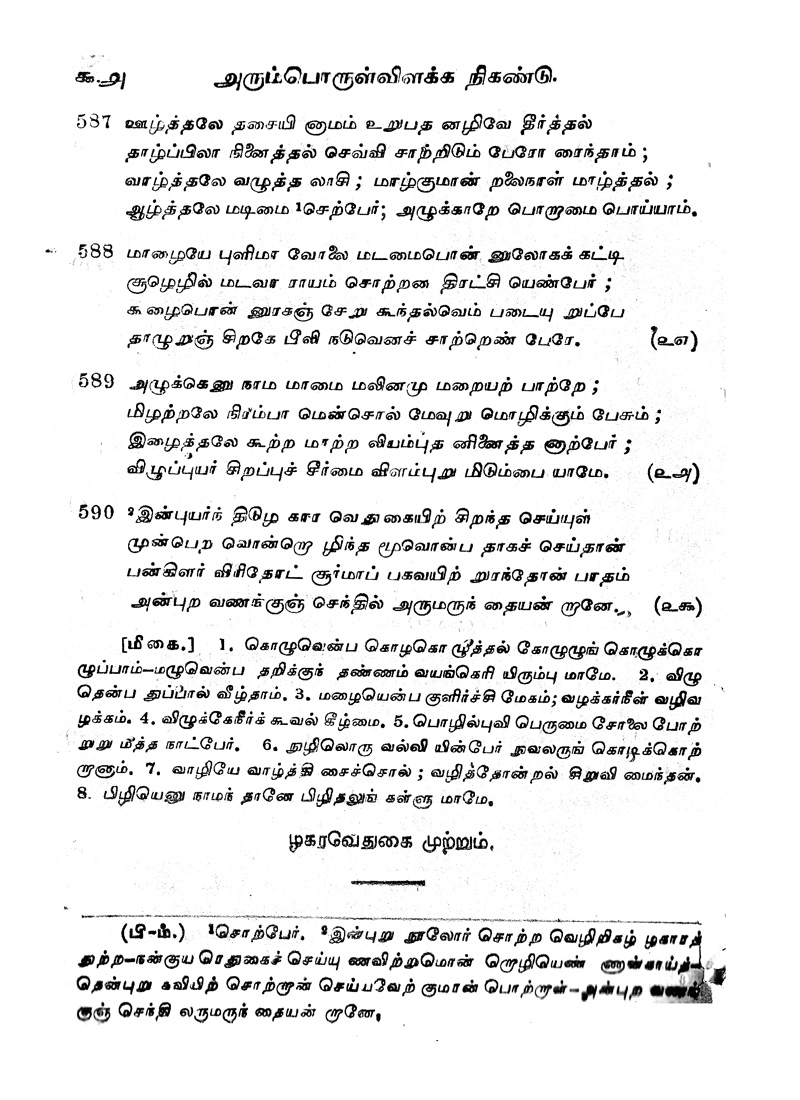 ௯.அ அரும்பொருள்விளக்க நிகண்டு.
587 ஊழ்த்தலே தசையி னாமம் உறுபத னழிவே தீர்த்தல்
தாழ்ப்பிலா நினைத்தல் செவ்வி சாற்றிடும் பேரோ ரைந்தாம் ;
வாழ்த்தலே வழுத்த லாசி ; மாழ்குமான் றலைநாள் மாழ்த்தல் ;
ஆழ்த்தலே மடிமை ¹செற்பேர்; அழுக்காறே பொறாமை பொய்யாம்.
588 மாழையே புளிமா வோலை மடமைபொன் னுலோகக் கட்டி
சூழெழில் மடவா ராயம் சொற்றன திரட்சி யென்பேர் ;
கூழைபொன் னூரகஞ் சேறு கூந்தல்வெம் படையு றுப்பே
தாழுறுஞ் சிறகே பீலி நடுவெனச் சாற்றெண் பேரே. (௨௭)
589 அழுக்கெனு நாம மாமை மலினமு மறையற் பாற்றே ;
மிழற்றலே நிரம்பா மென்சொல் மேவுறு மொழிக்கும் பேசும் ;
இழைத்தலே கூற்ற மாற்ற லியம்புத னினைத்த னாற்பேர் ;
விழுப்புயர் சிறப்புச் சீர்மை விளம்புறு மிடும்பை யாமே. (௨௮)
590 ²இன்புயர்ந் திடுழ கார வெதுகையிற் சிறந்த செய்யுள்
முன்பெற வொன்றொ ழிந்த மூவொன்ப தாகச் செய்தான்
பண்கிளர் விரிதோட் சூர்மாப் பகவயிற் றுரந்தோன் பாதம்
அன்புற வணங்குஞ் செந்தில் அருமருந் தையன் றானே. (௨௯)
[மிகை.] 1. கொழுவென்ப கொழகொ ழத்தல் கோழுழுங் கொழுக்கொ
ழுப்பாம்—மழுவென்ப தறிக்குந் தண்ணம் வயங்கெரி யிரும்பு மாமே. 2. விழு
தென்ப துப்பால் வீழ்தாம். 3. மழையென்ப குளிர்ச்சி மேகம்; வழக்கர்நீள் வழிவ
ழக்கம். 4. விழுக்கேநீர்க் கூவல் கீழ்மை. 5. பொழில்புவி பெருமை சோலை போற்
றுறு மீத்த நாட்பேர். 6. நுழிலொரு வல்லி யின்பேர் நுவலருங் கொடிக்கொற்
றானும். 7. வாழியே வாழ்த்தி சைச்சொல் ; வழித்தோன்றல் கிறுவி மைந்தன்.
8. பிழியெனு நாமந் தானே பிழிதலுங் கள்ளு மாமே.
ழகரவெதுகை முற்றும்.
(பி-ம்.) ¹சொற்பேர். ²இன்புறு நூலோர் சொற்ற வெழிறிகழ் ழகாரத்
துற்ற—நன்குய ரெதுகைச் செய்யு ணவிற்றுமொன் றொழியெண் ணான்காய்த்—
தென்புறு கவியிற் சொற்றான் செய்யவேற் குமரன் பொற்றாள்—அன்புற வணங்
குஞ் செந்தி லருமருந் தையன் றானே.